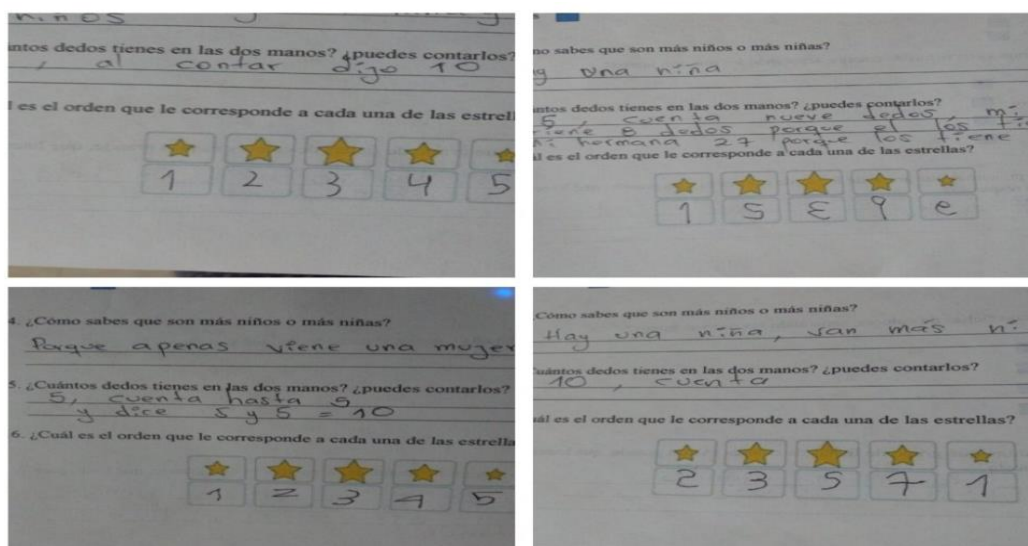 niños
ntos dedos tienes en las dos manos? ¿puedes contarlos?
, al contar digo 10
l es el orden que le corresponde a cada una de las estrel
1 2 3 4 5
no sabes que son más niños o más niñas?
y una niña
ntos dedos tienes en las dos manos? ¿puedes contarlos?
5, cuenta nueve dedos, mi
tiene 8 dedos porque el los
hermana 27 porque los tiene
ál es el orden que le corresponde a cada una de las estrellas?
1
4. ¿Cómo sabes que son más niños o más niñas?
Porque apenas viene una mujer
5. ¿Cuántos dedos tienes en las dos manos? ¿puedes contarlos?
5, cuenta hasta 5
y dice 5 y 5 = 10
6. ¿Cuál es el orden que le corresponde a cada una de las estrella
1 2 3 4 5
Cómo sabes que son más niños o más niñas?
Hay una niña, van más ni
Cuántos dedos tienes en las dos manos? ¿puedes contarlos?
10, cuenta
uál es el orden que le corresponde a cada una de las estrellas?
2 3 5 7 1